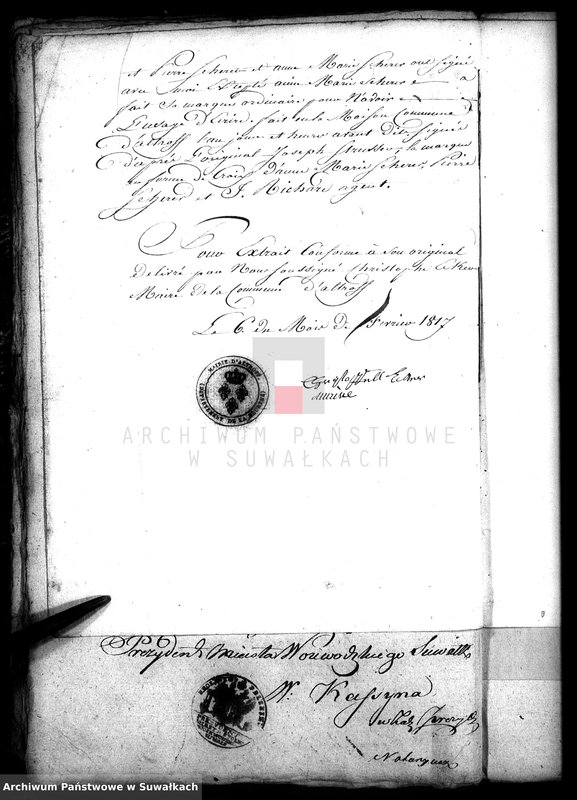 et Pierre Scherer et anne Marie Scherer ont signé
avec nous Excepté anne Marie Scherer a
fait Sa marque ordinaire pour N'avoir
L'usage D'Ecrire. fait en la Maison Commune
D'altroff l'an jour et heure avant Dit. Signée
D'après L'original Joseph, la marque
en forme de Croix D'anne Marie Scherer, Pierre
Scherer et J. Richard agent.
Pour Extrait Conforme à Son original
Delivré par Nous Soussigné Christophe
Maire de la Commune d'altroff
Le 6 du Mois de fevrier 1817
MAIRIE D'ALTROFF
ARCHIWUM PAŃSTWOWE
W SUWAŁKACH
Prezydent Miasta Woiewodzkiego Suwałk
W. Kassyna
Archiwum Państwowe w Suwałkach